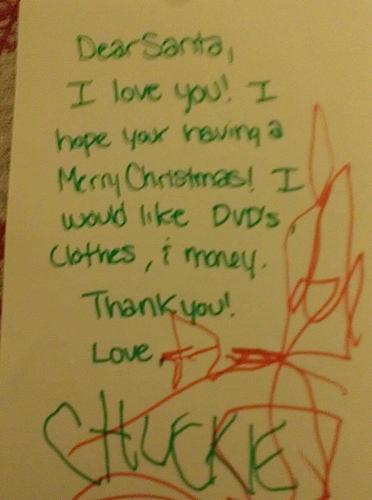 Dear Santa,
I love you! I
hope your having a
Merry Christmas! I
would like DVD's,
Clothes, & money.
Thank you!
Love,
CHUCKIE